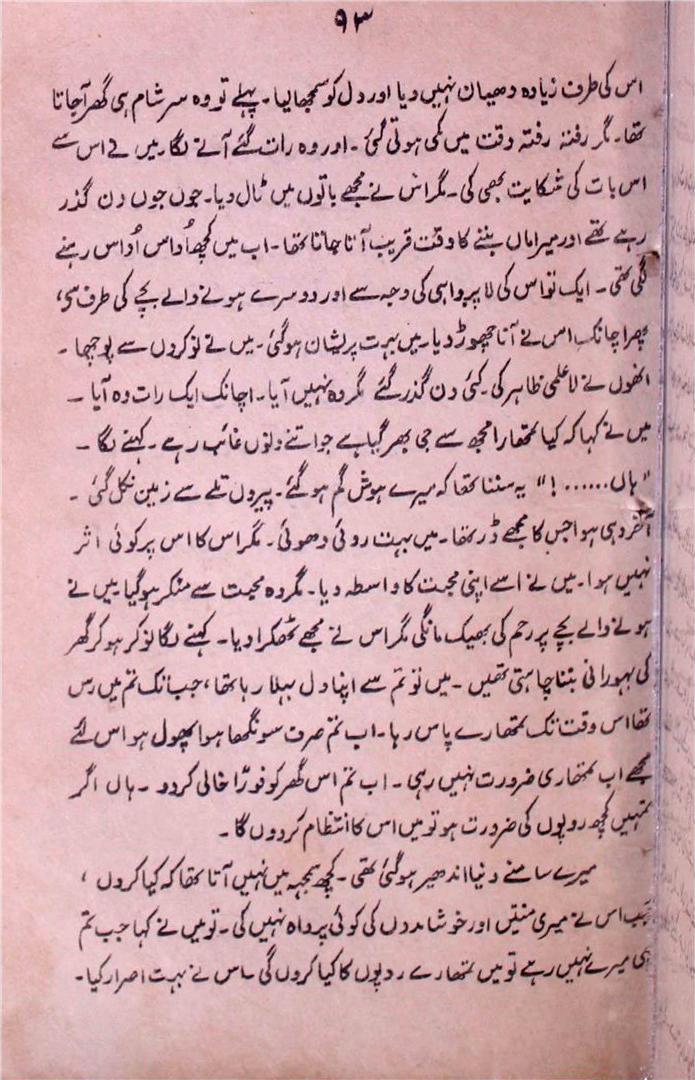 ۹۳
اس کی طرف زیادہ دھیان نہیں دیا اور دل کو سمجھا لیا۔ پہلے تو وہ سر شام ہی گھر آ جاتا
تھا۔ مگر رفتہ رفتہ وقت میں کمی ہوتی گئی ۔ اور وہ رات گئے آنے لگا۔ میں نے اس سے
اس بات کی شکایت بھی کی۔ مگر اس نے مجھے باتوں میں ٹال دیا۔ جوں جوں دن گذر
رہے تھے اور میرا ماں بننے کا وقت قریب آتا جاتا تھا۔ اب میں کچھ اُداس اُداس رہنے
لگی تھی ۔ ایک تو اس کی لاپرواہی کی وجہ سے اور دوسرے ہونے والے بچے کی طرف سے،
پھر اچانک اس نے آنا چھوڑ دیا۔ میں بہت پریشان ہو گئی ۔ میں نے نوکروں سے پوچھا ۔
انھوں نے لاعلمی ظاہر کی۔ کئی دن گذر گئے مگر وہ نہیں آیا۔ اچانک ایک رات وہ آیا ۔
میں نے کہا کہ کیا تمھارا مجھ سے جی بھر گیا ہے جو اتنے دنوں غائب رہے ۔ کہنے لگا ۔
"ہاں......!" یہ سننا تھا کہ میرے ہوش گم ہو گئے۔ پیروں تلے سے زمین نکل گئی ۔
آخر وہی ہوا جس کا مجھے ڈر تھا۔ میں بہت روئی دھوئی۔ مگر اس کا اس پر کوئی اثر
نہیں ہوا۔ میں نے اسے اپنی محبت کا واسطہ دیا۔ مگر وہ محبت سے منکر ہو گیا میں نے
ہونے والے بچے پر رحم کی بھیک مانگی مگر اس نے مجھے ٹھکرا دیا۔ کہنے لگا نوکر ہو کر گھر
کی بہورانی بننا چاہتی تھیں ۔ میں تو تم سے اپنا دل بہلا رہا تھا، جب تک تم میں رس
تھا اس وقت تک تمھارے پاس رہا۔ اب تم صرف سونگھا ہوا پھول ہو اس لئے
مجھے اب تمھاری ضرورت نہیں رہی ۔ اب تم اس گھر کو فوراً خالی کر دو ۔ ہاں اگر
تمہیں کچھ روپوں کی ضرورت ہو تو میں اس کا انتظام کر دوں گا ۔
میرے سامنے دنیا اندھیر ہو گئی تھی ۔ کچھ سمجھ میں نہیں آتا تھا کہ کیا کروں ،
جب اس نے میری منتیں اور خوشامدوں کی کوئی پرواہ نہیں کی۔ تو میں نے کہا جب تم
ہی میرے نہیں رہے تو میں تمھارے روپوں کا کیا کروں گی ۔ اس نے بہت اصرار کیا۔